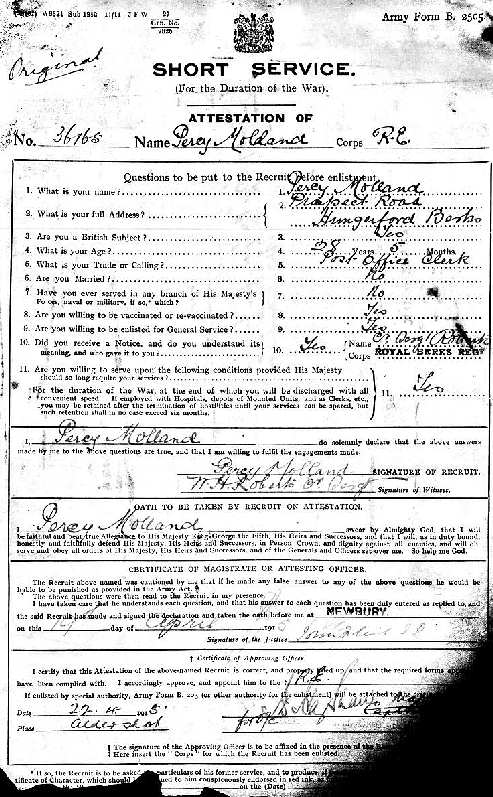 Original
Army Form B. 2505
SHORT SERVICE.
(For the Duration of the War).
ATTESTATION OF
No. 36165 Name Percy Molland Corps R.E.
Questions to be put to the Recruit before enlistment.
1. What is your name? 1. Percy Molland
2. What is your full Address? 2. Prospect Road
Hungerford Berks
3. Are you a British Subject? 3. Yes
4. What is your Age? 4. 38 Years 5 Months
5. What is your Trade or Calling? 5. Post Office Clerk
6. Are you Married? 6. No
7. Have you ever served in any branch of His Majesty's
Forces, naval or military, if so, which? 7. No
8. Are you willing to be vaccinated or re-vaccinated? 8. Yes
9. Are you willing to be enlisted for General Service? 9. Yes
10. Did you receive a Notice, and do you understand its
meaning, and who gave it to you? 10. Yes Name
Corps ROYAL BERKS REGT
11. Are you willing to serve upon the following conditions provided His Majesty
should so long require your services?
For the duration of the War, at the end of which you will be discharged with all
convenient speed. If employed with Hospitals, depots of Mounted Units, and as Clerks, etc.,
you may be retained after the termination of hostilities until your services can be spared, but
such retention shall in no case exceed six months. 11. Yes
I, Percy Molland do solemnly declare that the above answers
made by me to the above questions are true, and that I am willing to fulfil the engagements made.
Percy Molland SIGNATURE OF RECRUIT.
W.H. Roberts Signature of Witness.
OATH TO BE TAKEN BY RECRUIT ON ATTESTATION.
I, Percy Molland swear by Almighty God, that I will
be faithful and bear true Allegiance to His Majesty King George the Fifth, His Heirs and Successors, and that I will, as in duty bound,
honestly and faithfully defend His Majesty, His Heirs and Successors, in Person, Crown, and dignity against all enemies, and will ob-
serve and obey all orders of His Majesty, His Heirs and Successors, and of the Generals and Officers set over me. So help me God.
CERTIFICATE OF MAGISTRATE OR ATTESTING OFFICER.
The Recruit above named was cautioned by me that if he made any false answer to any of the above questions he would be
liable to be punished as provided in the Army Act.
The above questions were then read to the Recruit in my presence.
I have taken care that he understands each question, and that his answer to each question has been duly entered as replied to, and
the said Recruit has made and signed the declaration and taken the oath before me at NEWBURY
on this 19 day of April 191
Signature of the Justice
† Certificate of Approving Officer
I certify that this Attestation of the above-named Recruit is correct, and properly filled up, and that the required forms
have been complied with. I accordingly approve, and appoint him to the ‡ R.E.
If enlisted by special authority, Army Form B. 203 (or other authority for the enlistment) will be attached to the
Date 22.4.1915
Place Aldershot
† The signature of the Approving Officer is to be affixed in the presence of the
‡ Here insert the "Corps" for which the Recruit has been enlisted.
* If so, the Recruit is to be asked particulars of his former service, and to produce,
tificate of Character, which should
to him conspicuously endorsed in red ink,
on the (Date)